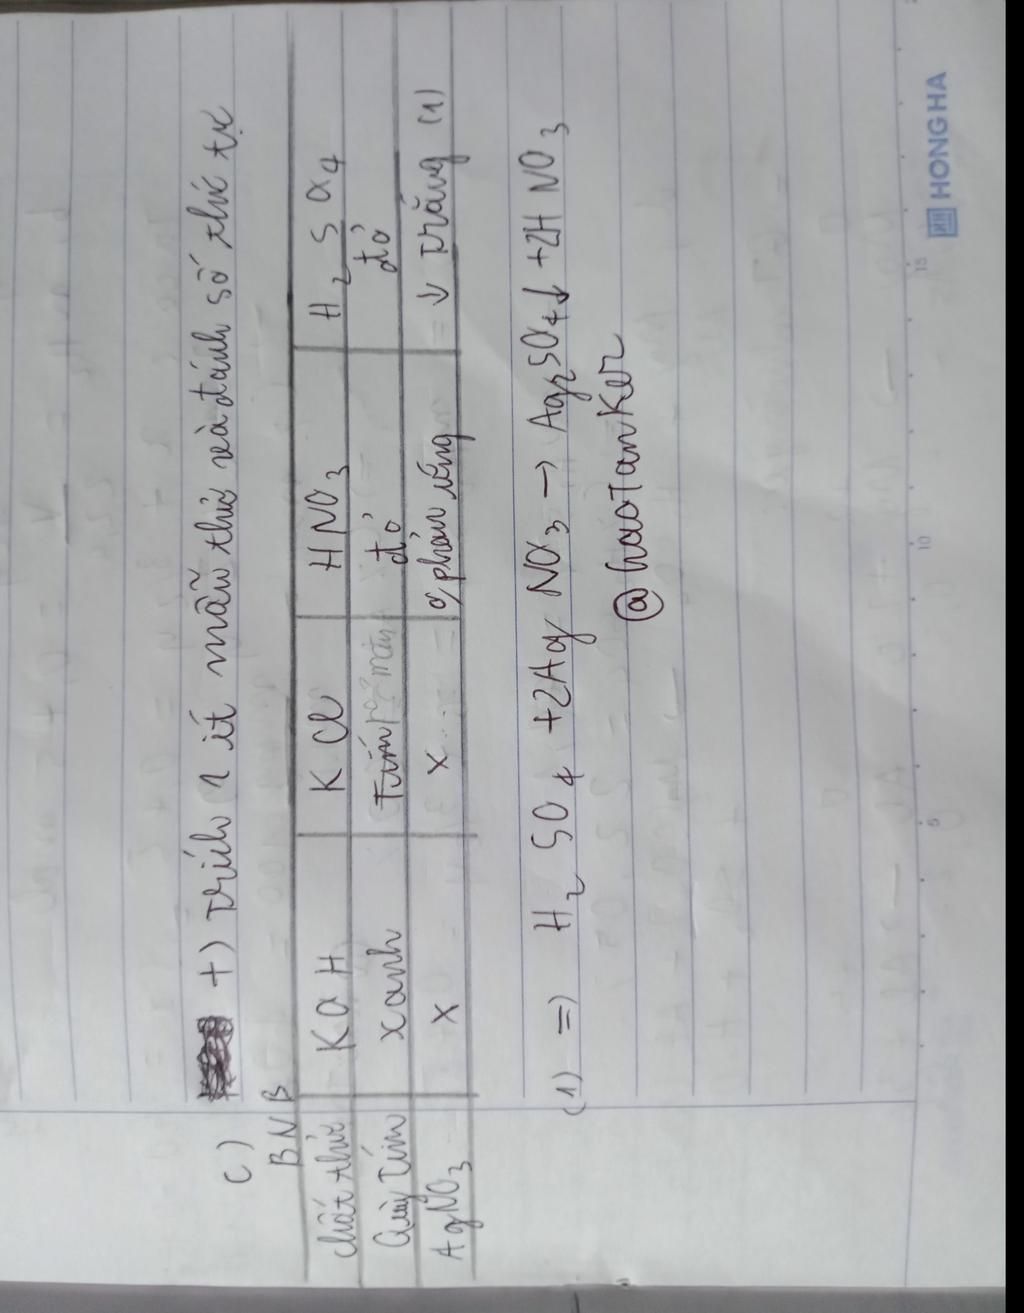 c) +) Trích 1 ít mẫu thử và đánh số thứ tự
BNB
chất thử KOH KCl HNO3 H2SO4
Quỳ Tím xanh Tím đỏ đỏ
AgNO3 x x phản ứng ↓ Trắng (1)
(1) => H2SO4 + 2AgNO3 → Ag2SO4↓ + 2HNO3
@HaoTanKer
5 10 15
HONG HA